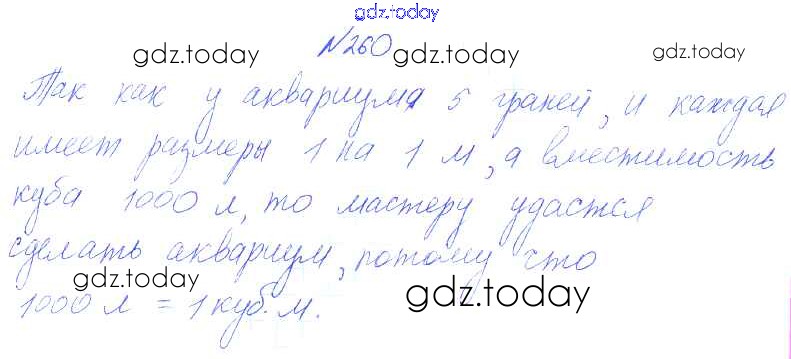 gdz.today
№260
gdz.today gdz.today gdz.today
Так как у аквариума 5 граней, и каждая
имеет размеры 1 на 1 м, а вместимость
куба 1000 л, то мастеру удастся
сделать аквариум, потому что
gdz.today
1000 л = 1 куб. м.
gdz.today